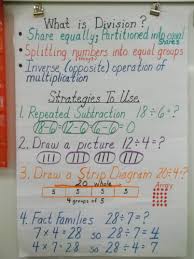 What is Division?
• Share equally; Partitioned into equal shares
• Splitting numbers into equal groups
• Inverse (opposite) operation of multiplication
Strategies To Use
1. Repeated Subtraction 18÷6=?
18-6 12-6 6-6=0
2. Draw a picture 12÷4=?
3. Draw a Strip Diagram 20÷4=?
20 whole
Array
5 5 5 5
4 groups of 5
4. Fact Families 28÷7=?
7×4=28 so 28÷7=4
4×7=28 so 28÷4=7